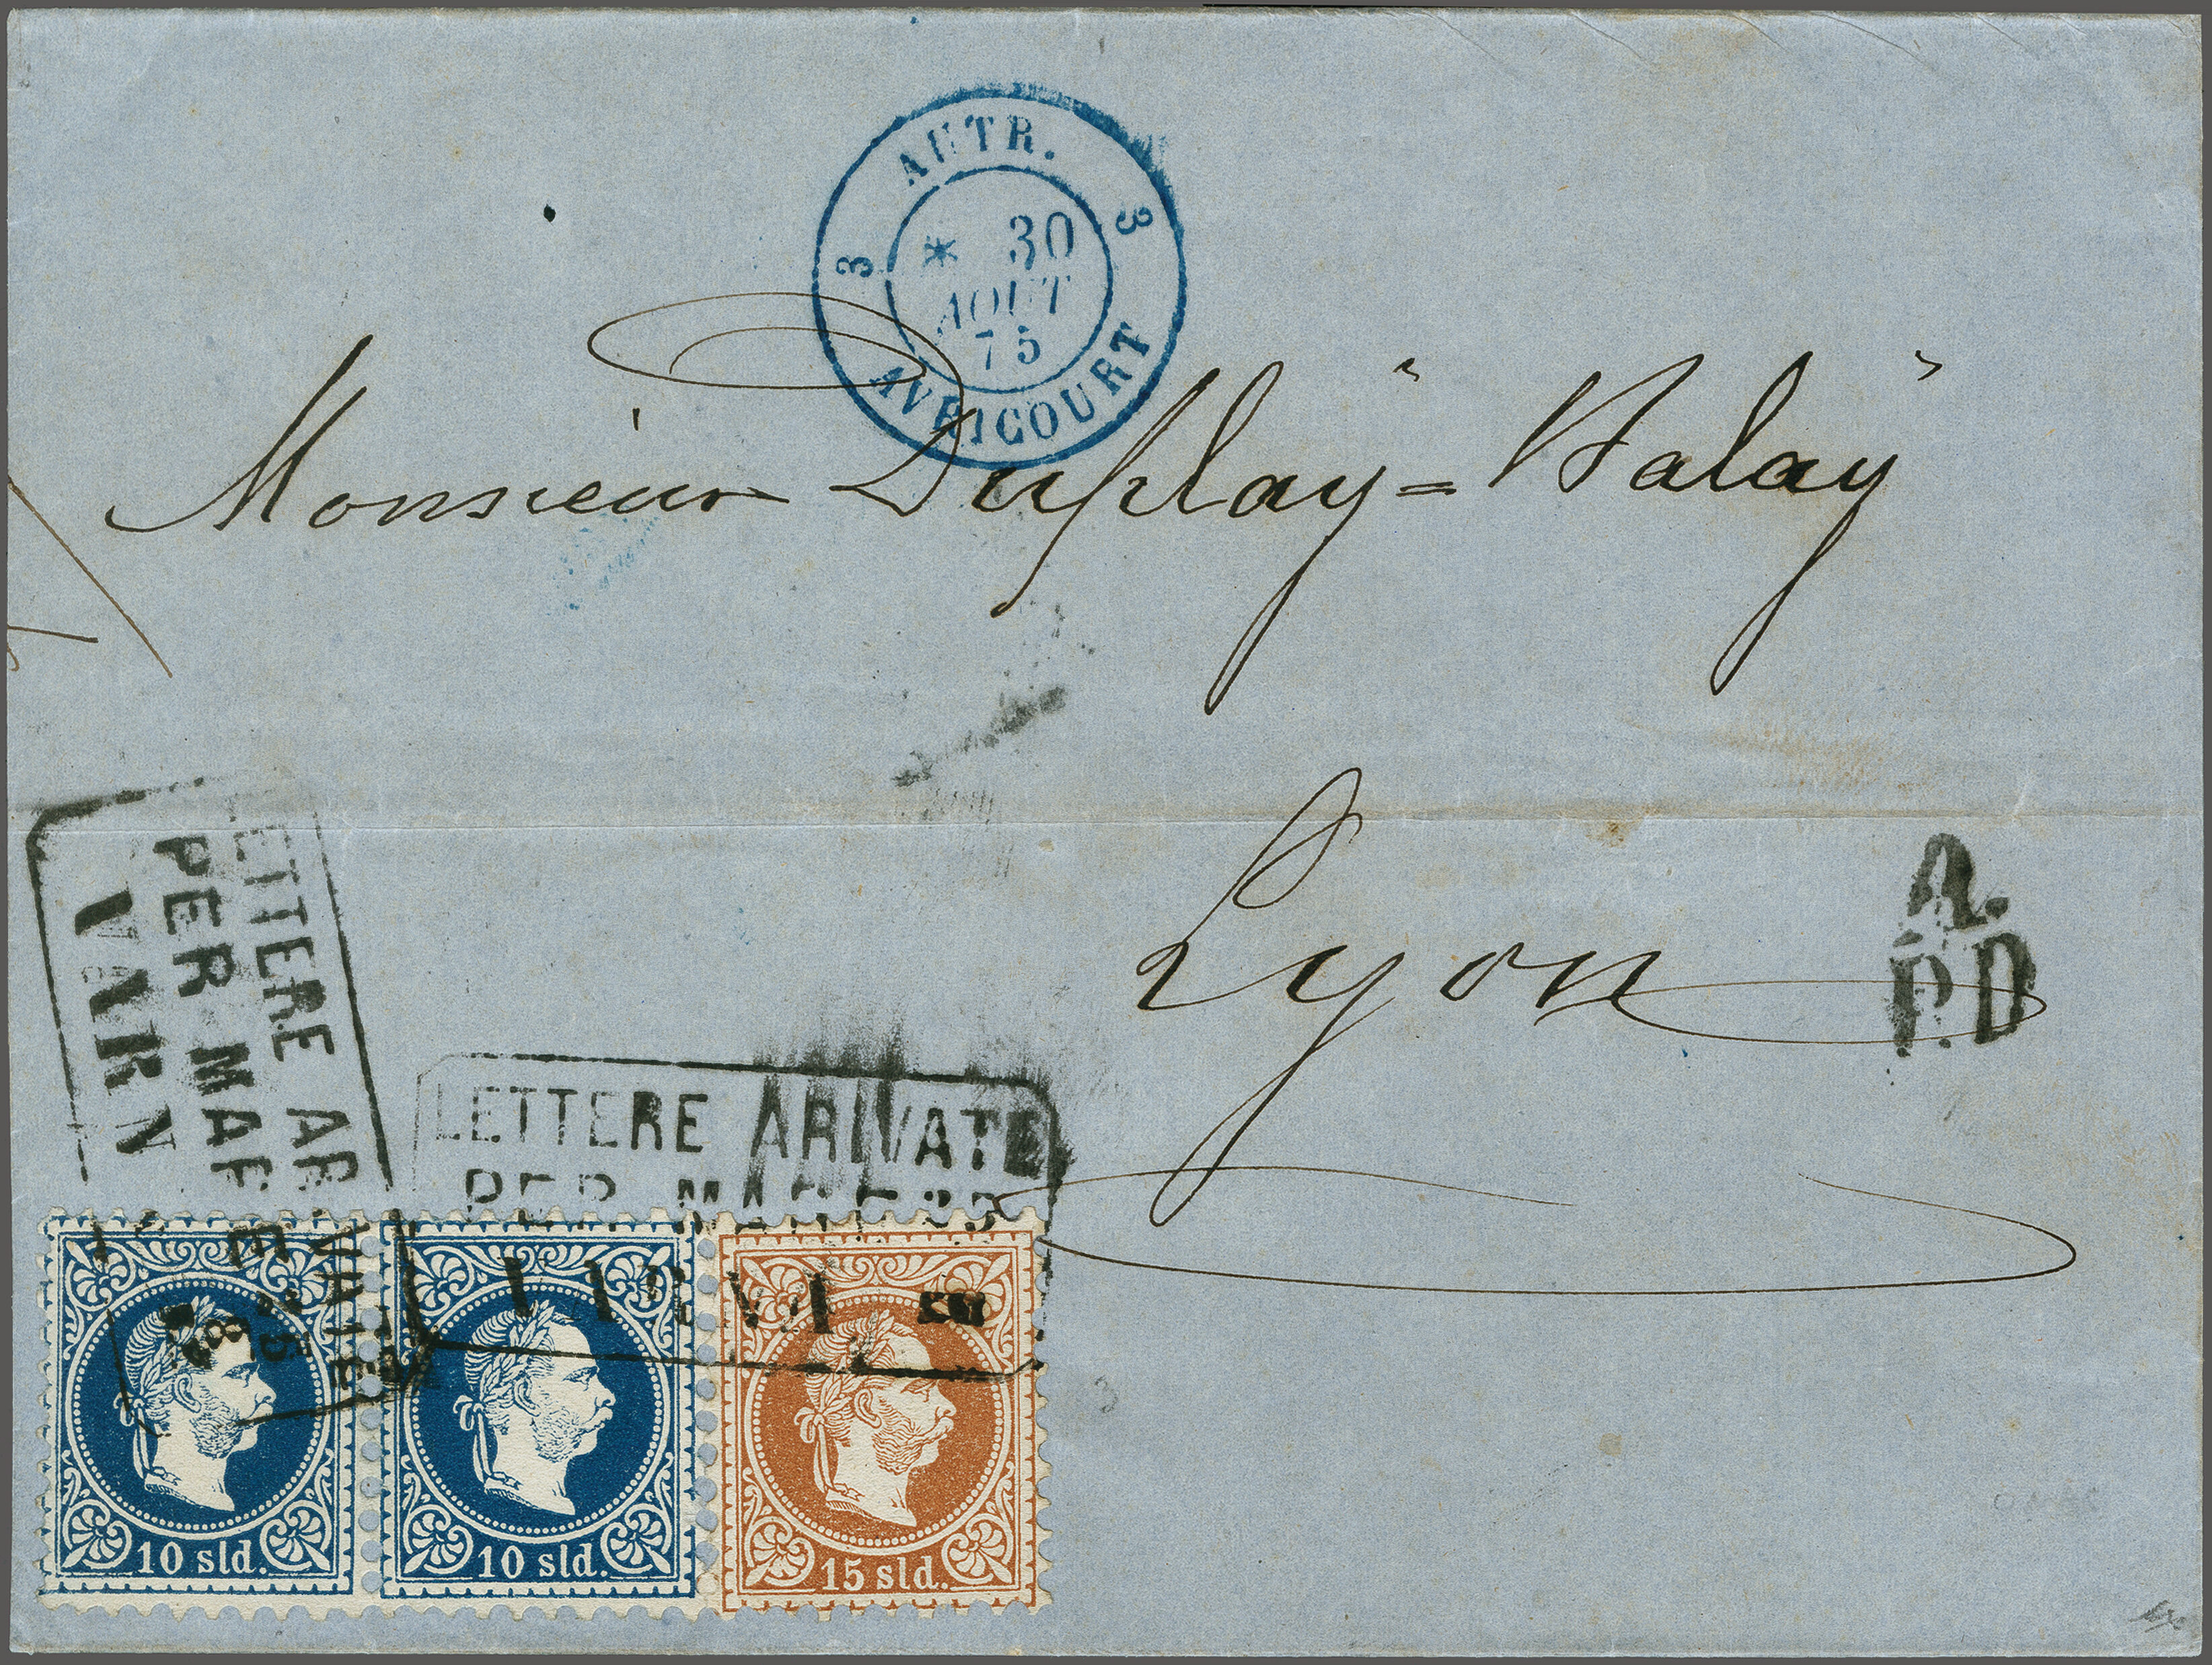 AUTR.
3 3
* 30
AOUT
75
AVRICOURT
Monsieur Duplaÿ=Balaÿ
Lyon
A.
P.D
LETTERE AR VATE
PER MAR E
VARN
LETTERE ARIVATE
PER MARE
10 sld.
10 sld.
15 sld.
3